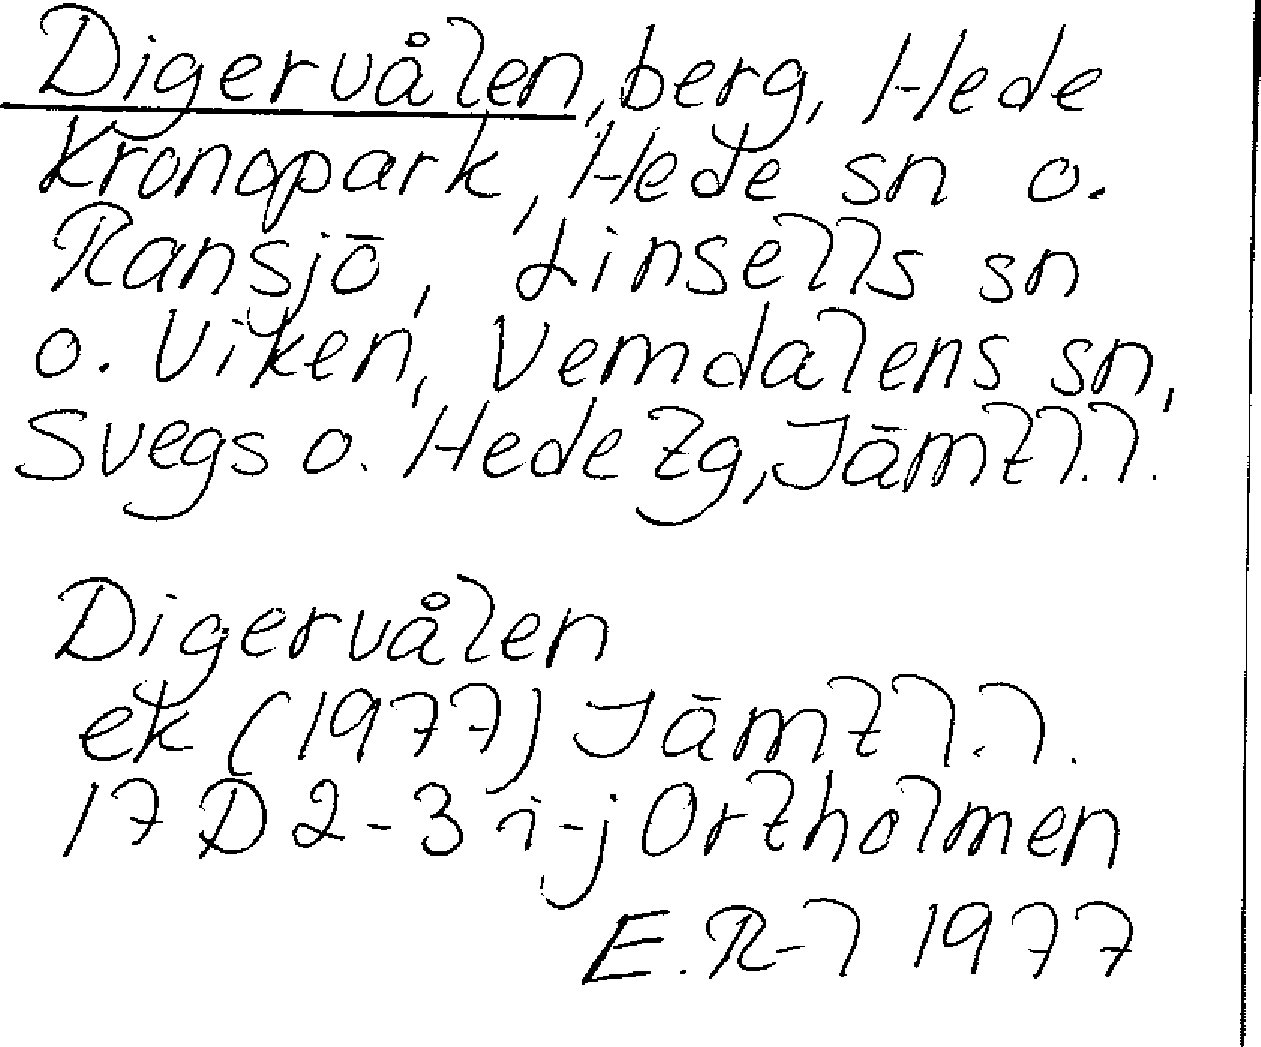 Digervålen, berg, Hede
Kronopark, Hede sn o.
Ransjö, Linsells sn
o. Viken, Vemdalens sn,
Svegs o. Hede tg, Jämtl.l.
Digervålen
ek (1977) Jämtl.l.
17 D 2-3 i-j Ortholmen
E. R-l 1977